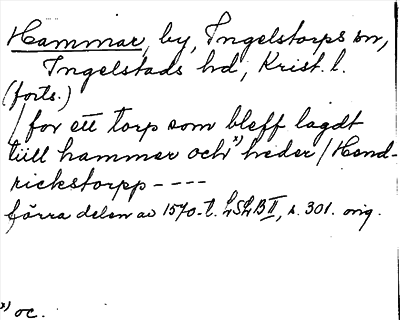 Hammar, by, Ingelstorps sn,
Ingelstads hd, Krist. l.
(forts.)
/ for ett torp som bleff lagdt
tiill hammer och x) heder / Hend-
rickstorpp ----
förra delen av 1570-t. LSLB II, s. 301. orig.
x) oc.